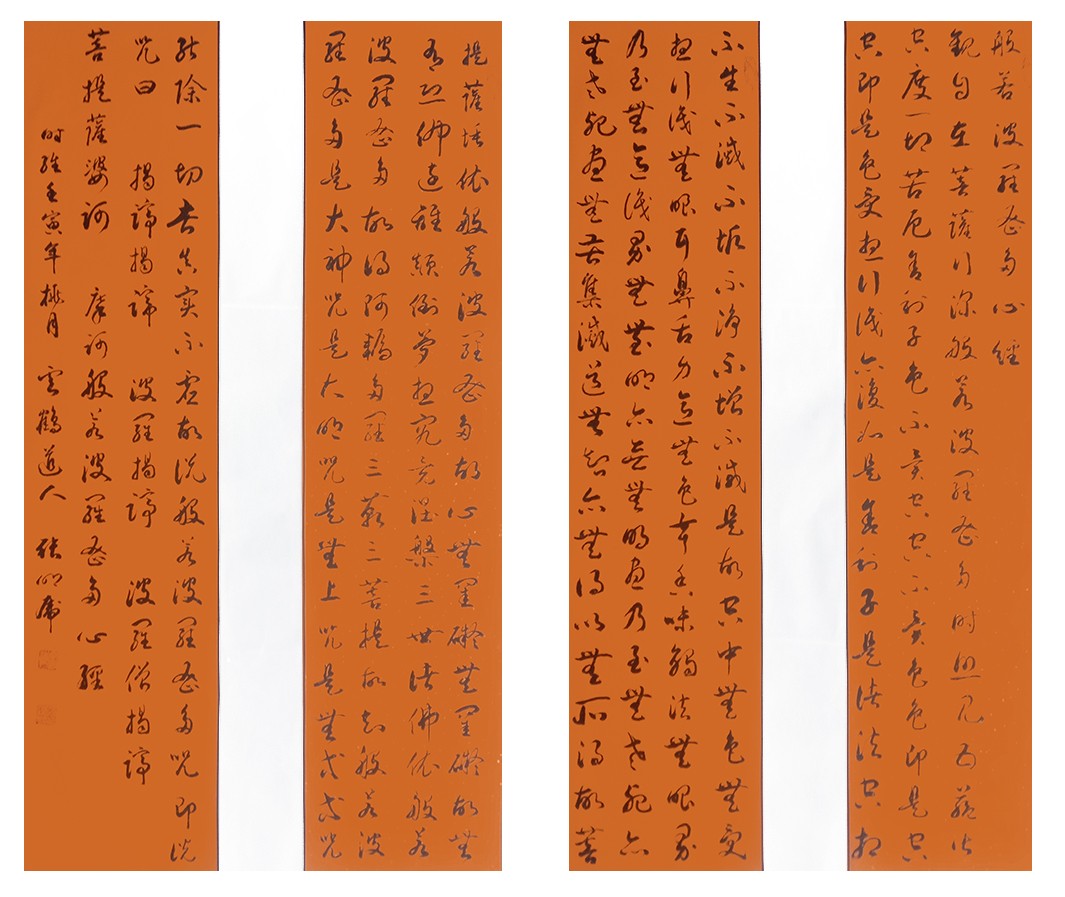 般若波羅蜜多心經
觀自在菩薩行深般若波羅蜜多時照見五蘊皆
空度一切苦厄舍利子色不異空空不異色色即是空
空即是色受想行識亦復如是舍利子是諸法空相
不生不滅不垢不淨不增不減是故空中無色無受
想行識無眼耳鼻舌身意無色聲香味觸法無眼界
乃至無意識界無無明亦無無明盡乃至無老死亦
無老死盡無苦集滅道無智亦無得以無所得故菩
提薩埵依般若波羅蜜多故心無罣礙無罣礙故無
有恐怖遠離顛倒夢想究竟涅槃三世諸佛依般若
波羅蜜多故得阿耨多羅三藐三菩提故知般若波
羅蜜多是大神呪是大明呪是無上咒是無等等呪
能除一切苦真實不虛故說般若波羅蜜多呪即說
咒曰 揭諦揭諦 波羅揭諦 波羅僧揭諦
菩提薩婆訶 摩訶般若波羅蜜多心經
時維壬寅年桃月 雲鶴道人 張明虎